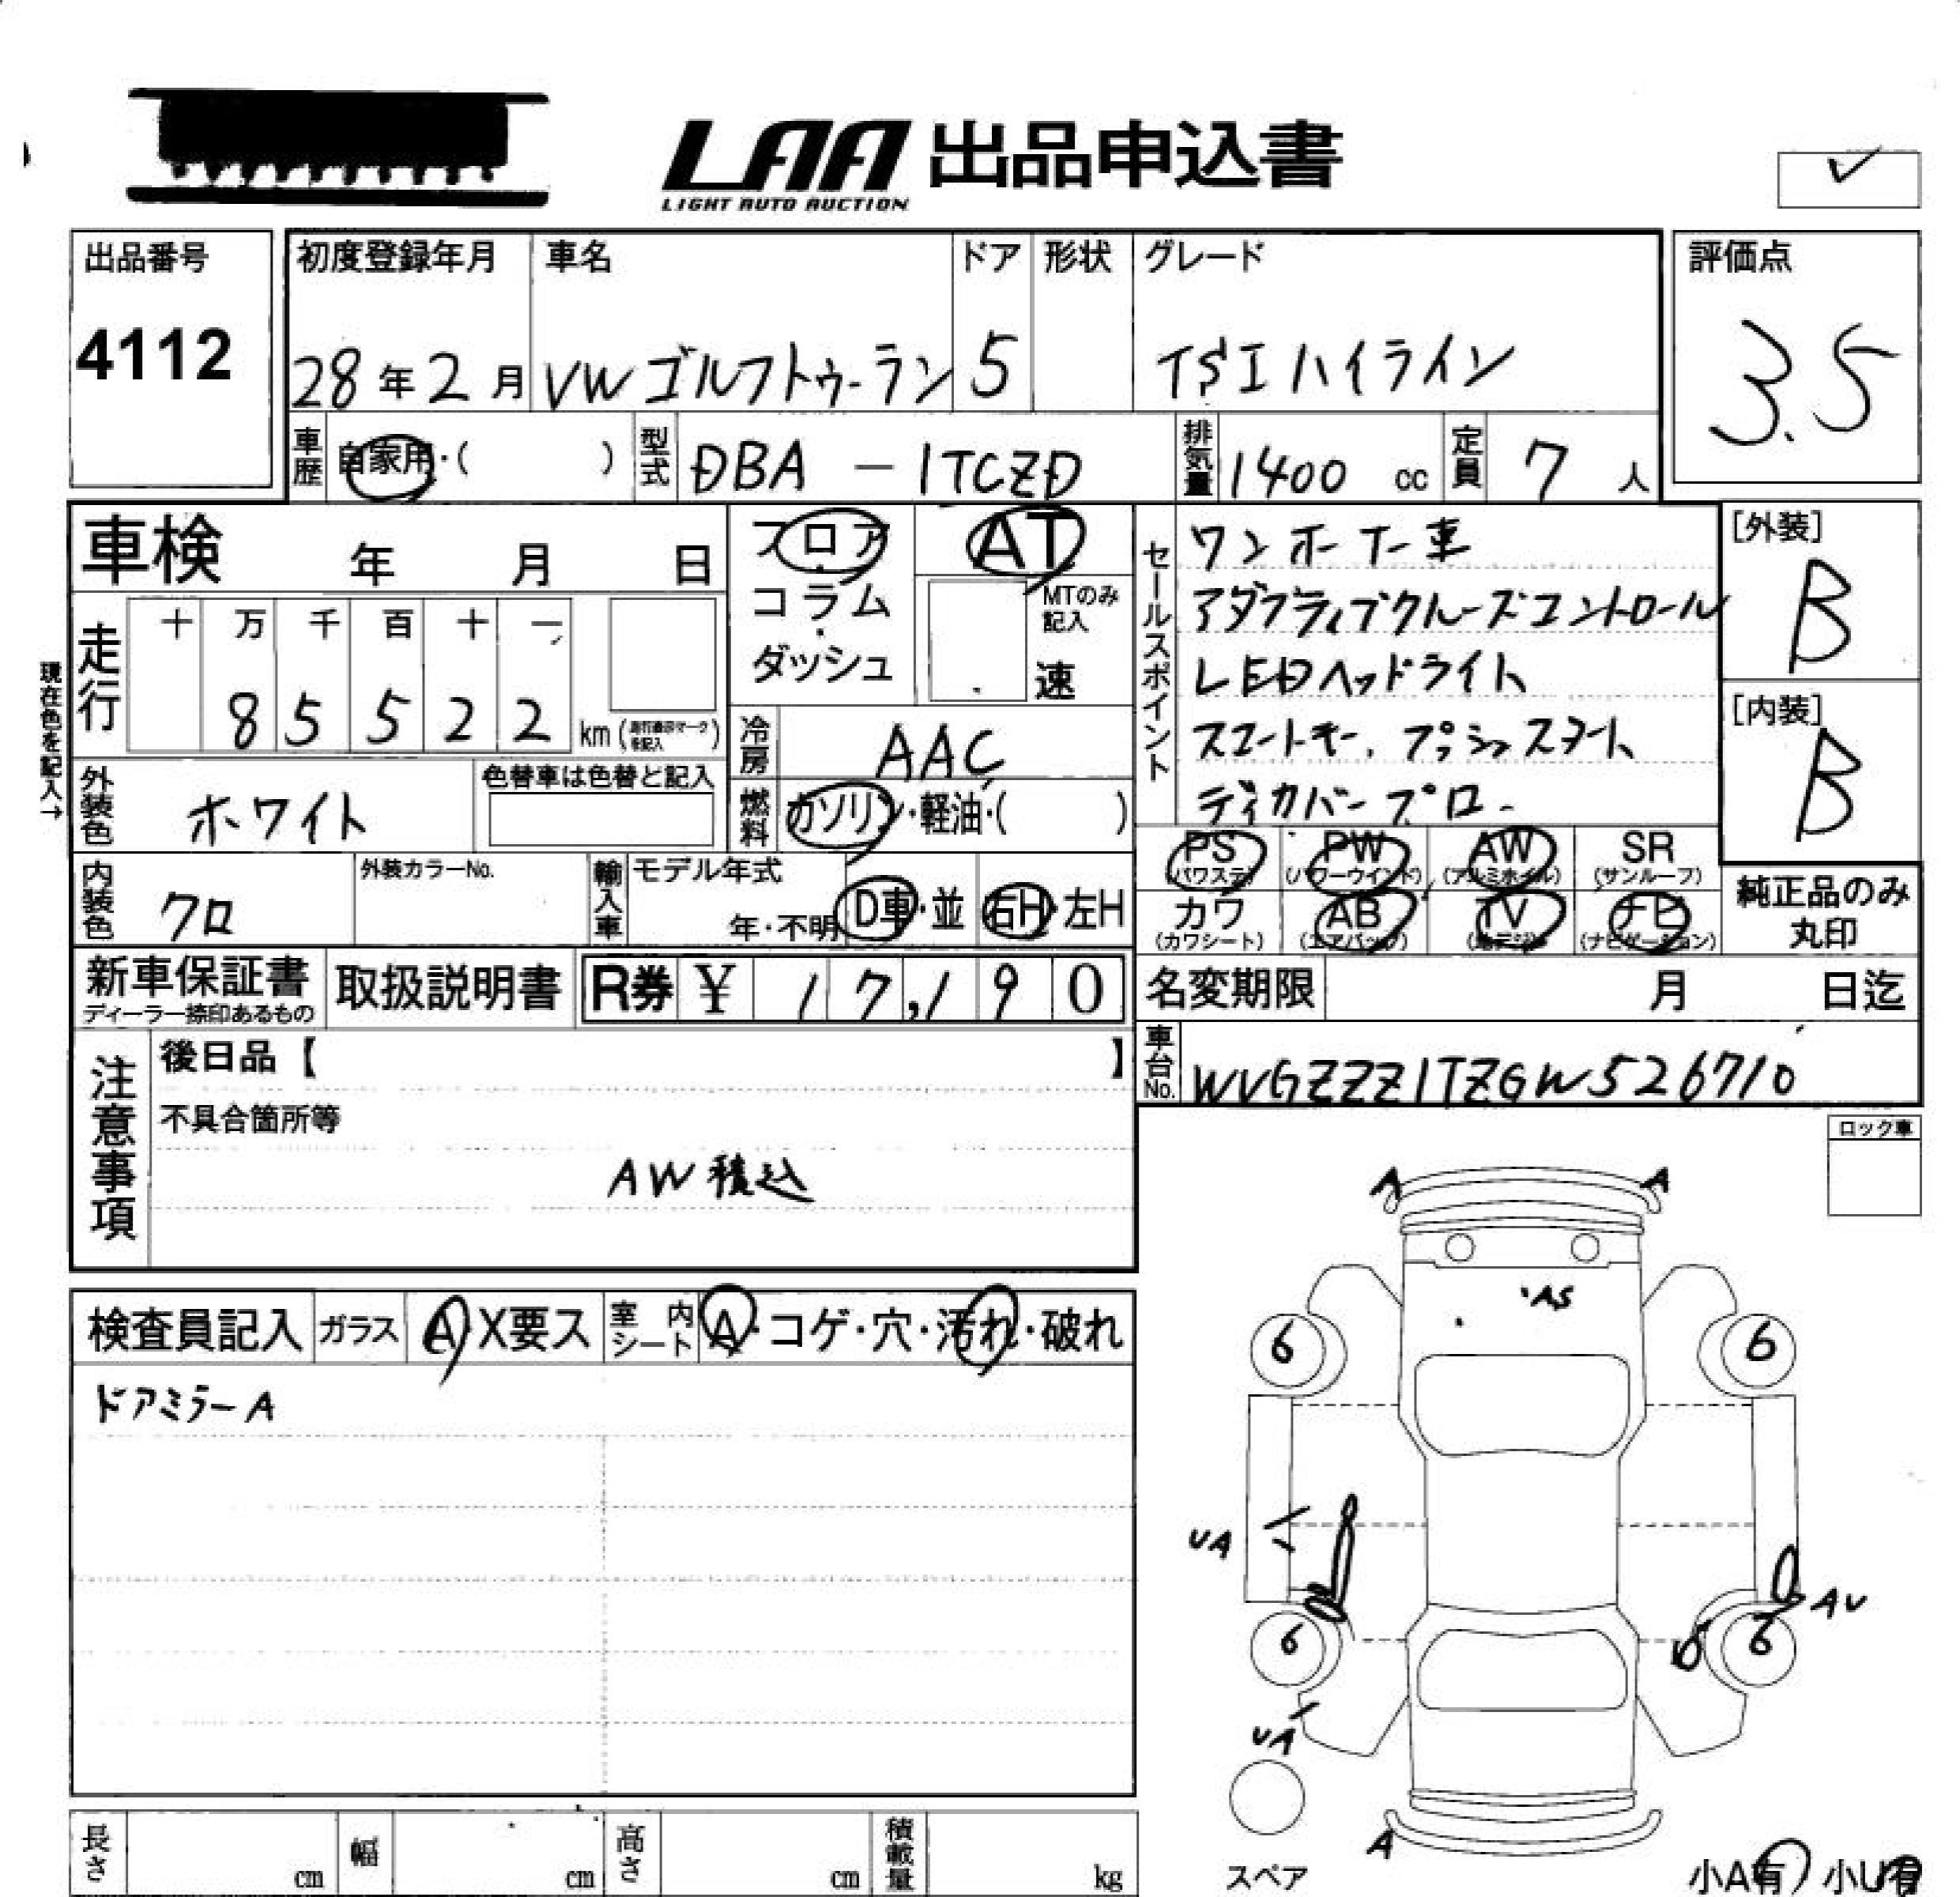 LAA 出品申込書
LIGHT AUTO AUCTION
✓
出品番号
4112
初度登録年月
28年2月
車名
VW ゴルフトゥーラン
ドア
5
形状
グレード
TSI ハイライン
評価点
3.5
車歴
自家用・( )
型式
DBA － 1TCZD
排気量
1400 cc
定員
7 人
車検 年 月 日
フロア
・
コラム
・
ダッシュ
AT
MTのみ
記入
速
セールスポイント
ワンオーナー車
アダプティブクルーズコントロール
LEDヘッドライト
スマートキー、プッシュスタート
ディカバープロ
[外装]
B
[内装]
B
現在色を記入→
走行
十 万 千 百 十 一
8 5 5 2 2 km
冷房
AAC
外装色
ホワイト
色替車は色替と記入
燃料
ガソリン・軽油・( )
PS (パワステ)
PW (パワーウインド)
AW (アルミホイル)
SR (サンルーフ)
カワ (カワシート)
AB (エアバッグ)
TV (地デジ)
ナビ (ナビゲーション)
純正品のみ
丸印
内装色
クロ
外装カラーNo.
輸入車
モデル年式
年・不明
D車・並
右H・左H
新車保証書
ディーラー捺印あるもの
取扱説明書
R券 ¥ 17,190
名変期限 月 日迄
車台No.
WVGZZZ1TZGW526710
注意事項
後日品【 】
不具合箇所等
AW積込
ロック車
検査員記入
ガラス
A・X要ス
室内シート
A・コゲ・穴・汚れ・破れ
ドアミラーA
A
A
・AS
6
6
UA
AU
6
6
UA
A
スペア
小A有
小U有
長さ cm
幅 cm
高さ cm
積載量 kg